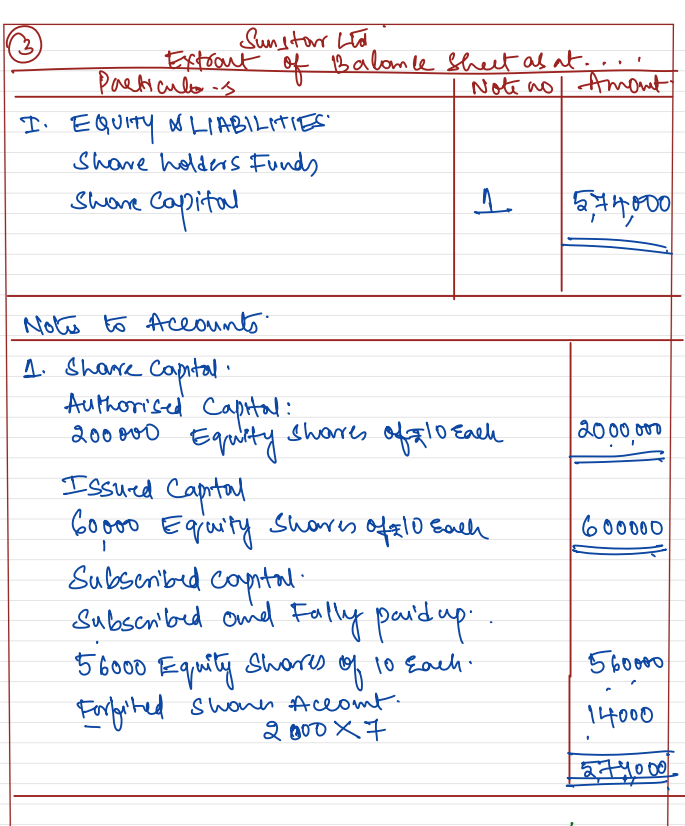 3
Sunstar Ltd
Extract of Balance Sheet as at....
Particulars Note no Amount
I. EQUITY & LIABILITIES
Share holders Funds
Share Capital 1 5,74,000
Notes to Accounts
1. Share Capital.
Authorised Capital:
200000 Equity shares of ₹10 Each 2000,000
Issued Capital
60,000 Equity Shares of ₹10 Each 600000
Subscribed capital.
Subscribed and Fally paid up.
56000 Equity Shares of 10 Each. 560000
Forfited shares Account. 14000
2000 X 7
5,74,000